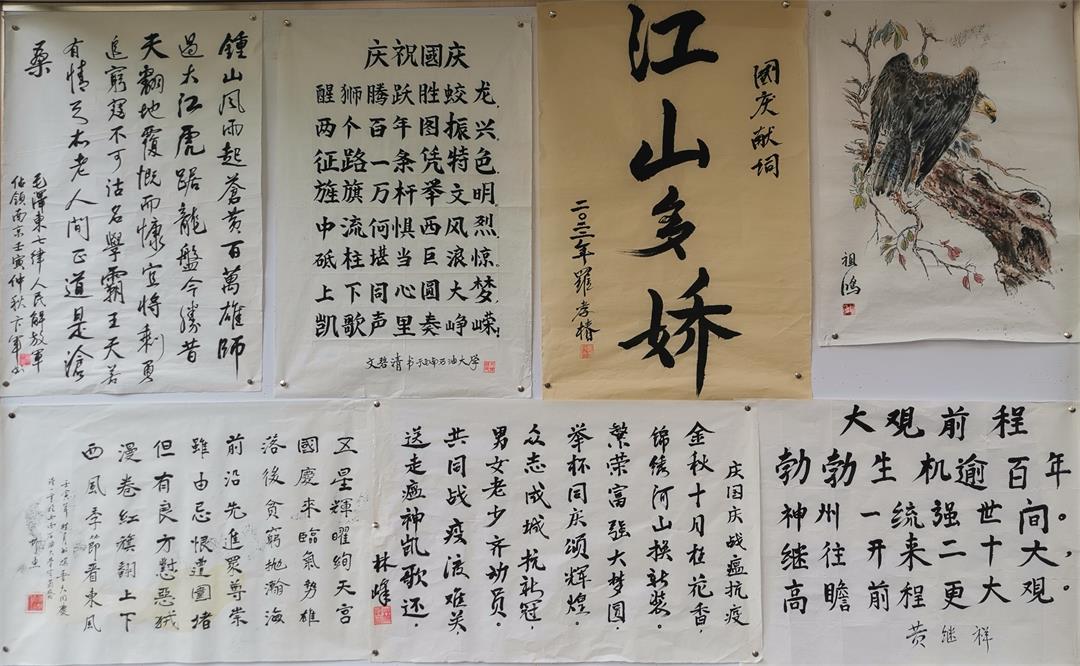 鍾山风雨起蒼黄百萬雄師
過大江虎踞龍盤今勝昔
天翻地覆慨而慷宜将剩勇
追窮寇不可沽名學霸王天若
有情天亦老人間正道是滄
桑
毛澤東七律人民解放軍
佔領南京壬寅仲秋卞軍书
庆祝國庆
醒狮腾跃胜蛟龙
两个百年图振兴
征路一条凭特色
旌旗万杆举文明
中流何惧西风烈
砥柱堪当巨浪惊
上下同心圆大梦
凯歌声里奏峥嵘
文哲清书于西南石油大学
國庆献词
江山多娇
二〇二二年羅孝椿
祖鴻
五星輝曜絢天宫
國慶來臨氣勢雄
落後貧窮抛瀚海
前沿先進眾尊崇
雖由忌恨遭圍堵
但有良方懟惡
漫卷紅旗翻上下
西風季節晋東風
庆国庆战瘟抗疫
金秋十月桂花香，
锦绣河山换新装。
繁荣富强大梦圆，
举杯同庆颂辉煌。
众志成城抗新冠，
男女老少齐动员。
共同战疫渡难关，
送走瘟神凯歌还。
林峰
大观前程
勃勃生机逾百年。
神州一统强世间，
继往开来二十大，
高瞻前程更大观。
黄继祥